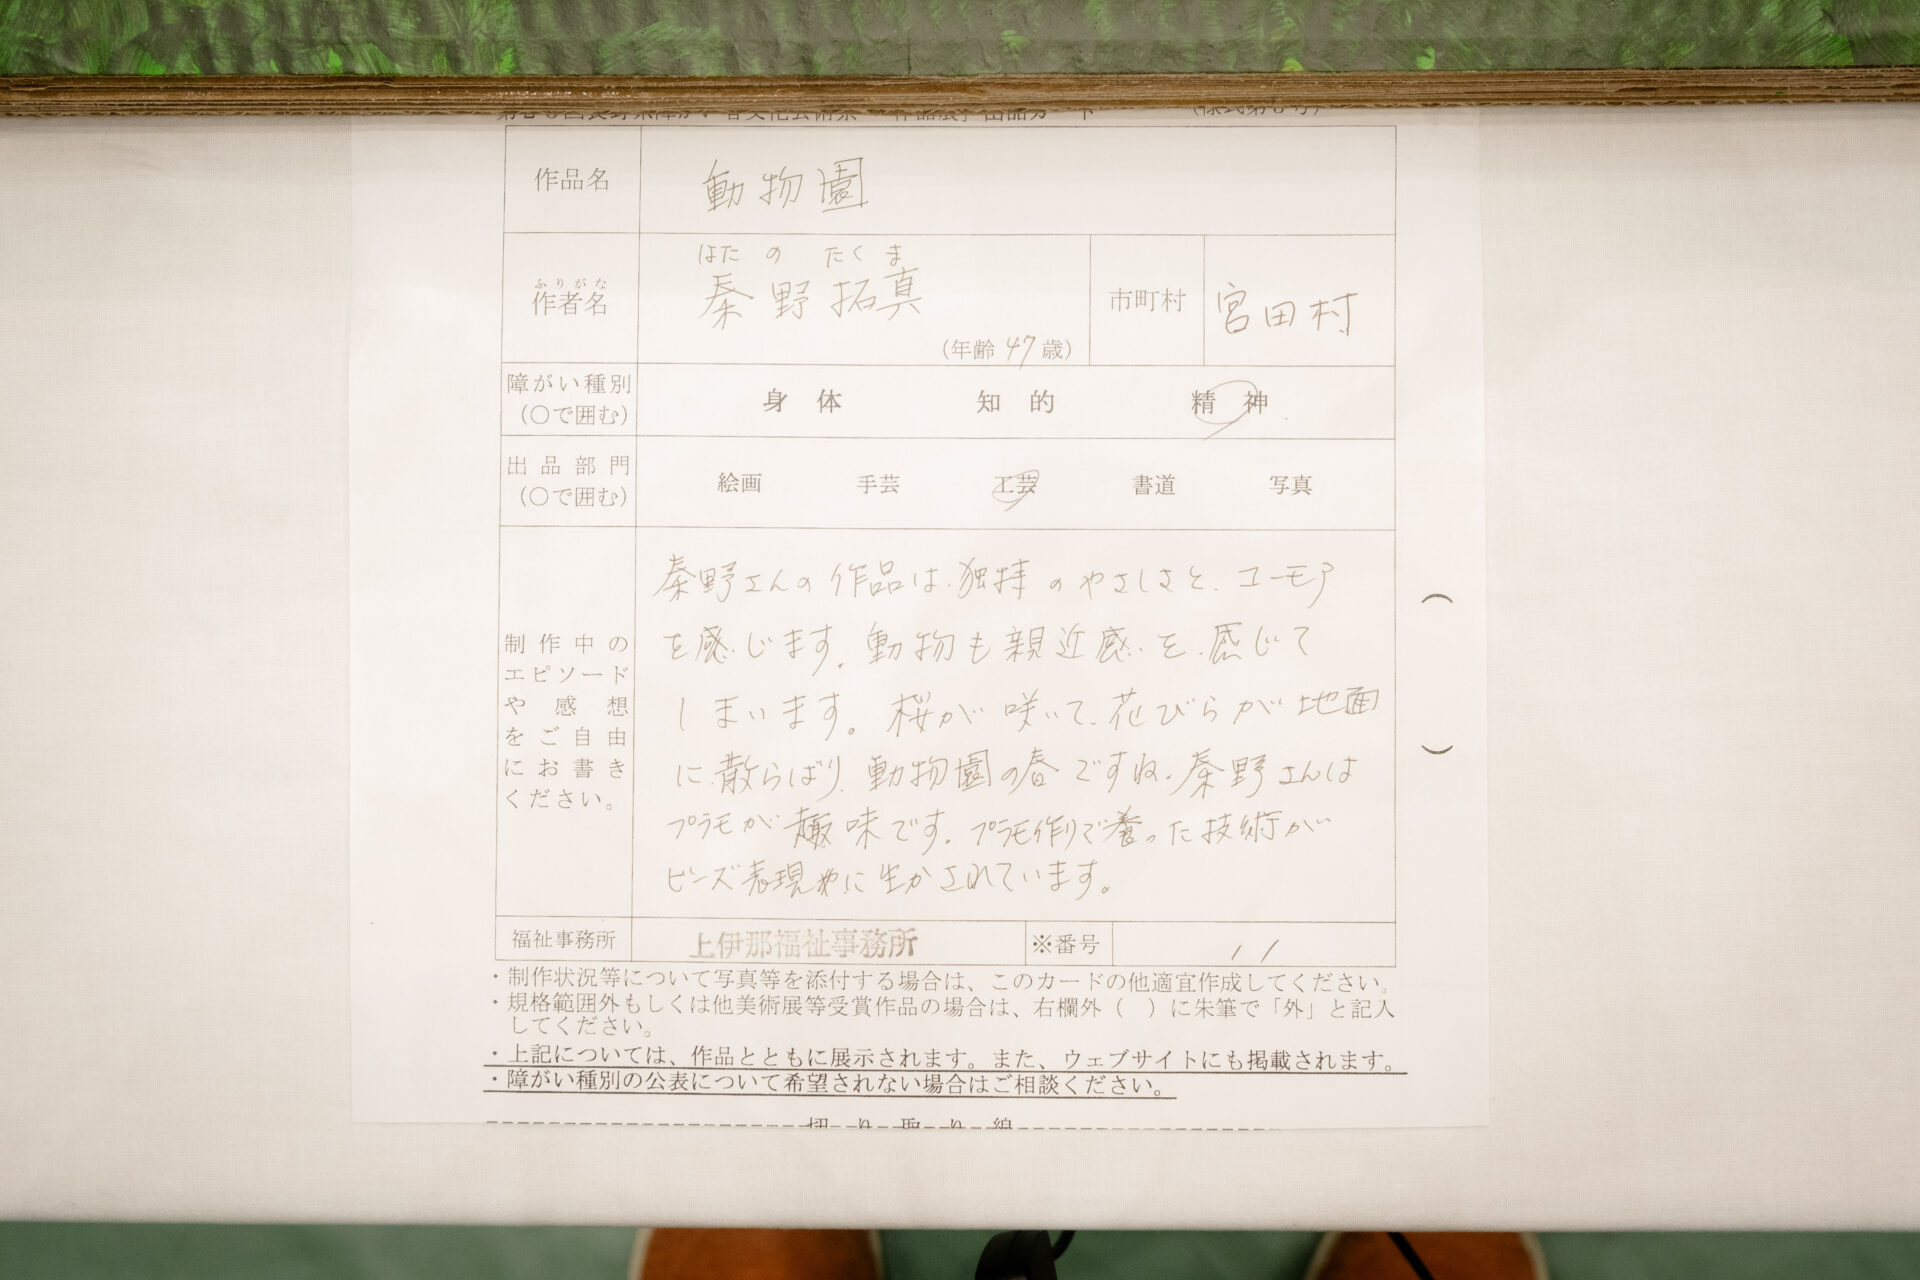 長野県障がい者文化芸術祭 作品展」出品カード
作品名 動物園
はたの たくま
ふりがな
作者名 秦野拓真 市町村 宮田村
(年齢 47 歳)
障がい種別
(○で囲む) 身体 知的 精神
出品部門
(○で囲む) 絵画 手芸 工芸 書道 写真
制作中の
エピソード
や感想
をご自由
にお書き
ください。
秦野さんの作品は、独特のやさしさと、ユーモア
を感じます。動物も親近感を感じて
しまいます。桜が咲いて、花びらが地面
に散らばり、動物園の春ですね。秦野さんは
プラモが趣味です。プラモ作りで養った技術が
ビーズ表現に生かされています。
福祉事務所 上伊那福祉事務所 ※番号 11
・制作状況等について写真等を添付する場合は、このカードの他適宜作成してください。
・規格範囲外もしくは他美術展等受賞作品の場合は、右欄外（ ）に朱筆で「外」と記入
してください。
・上記については、作品とともに展示されます。また、ウェブサイトにも掲載されます。
・障がい種別の公表について希望されない場合はご相談ください。
切り取り線